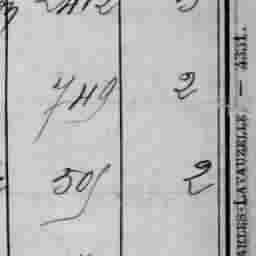 2412
749 2
509 2
ARLES-LAVAUZELLE — 4331.